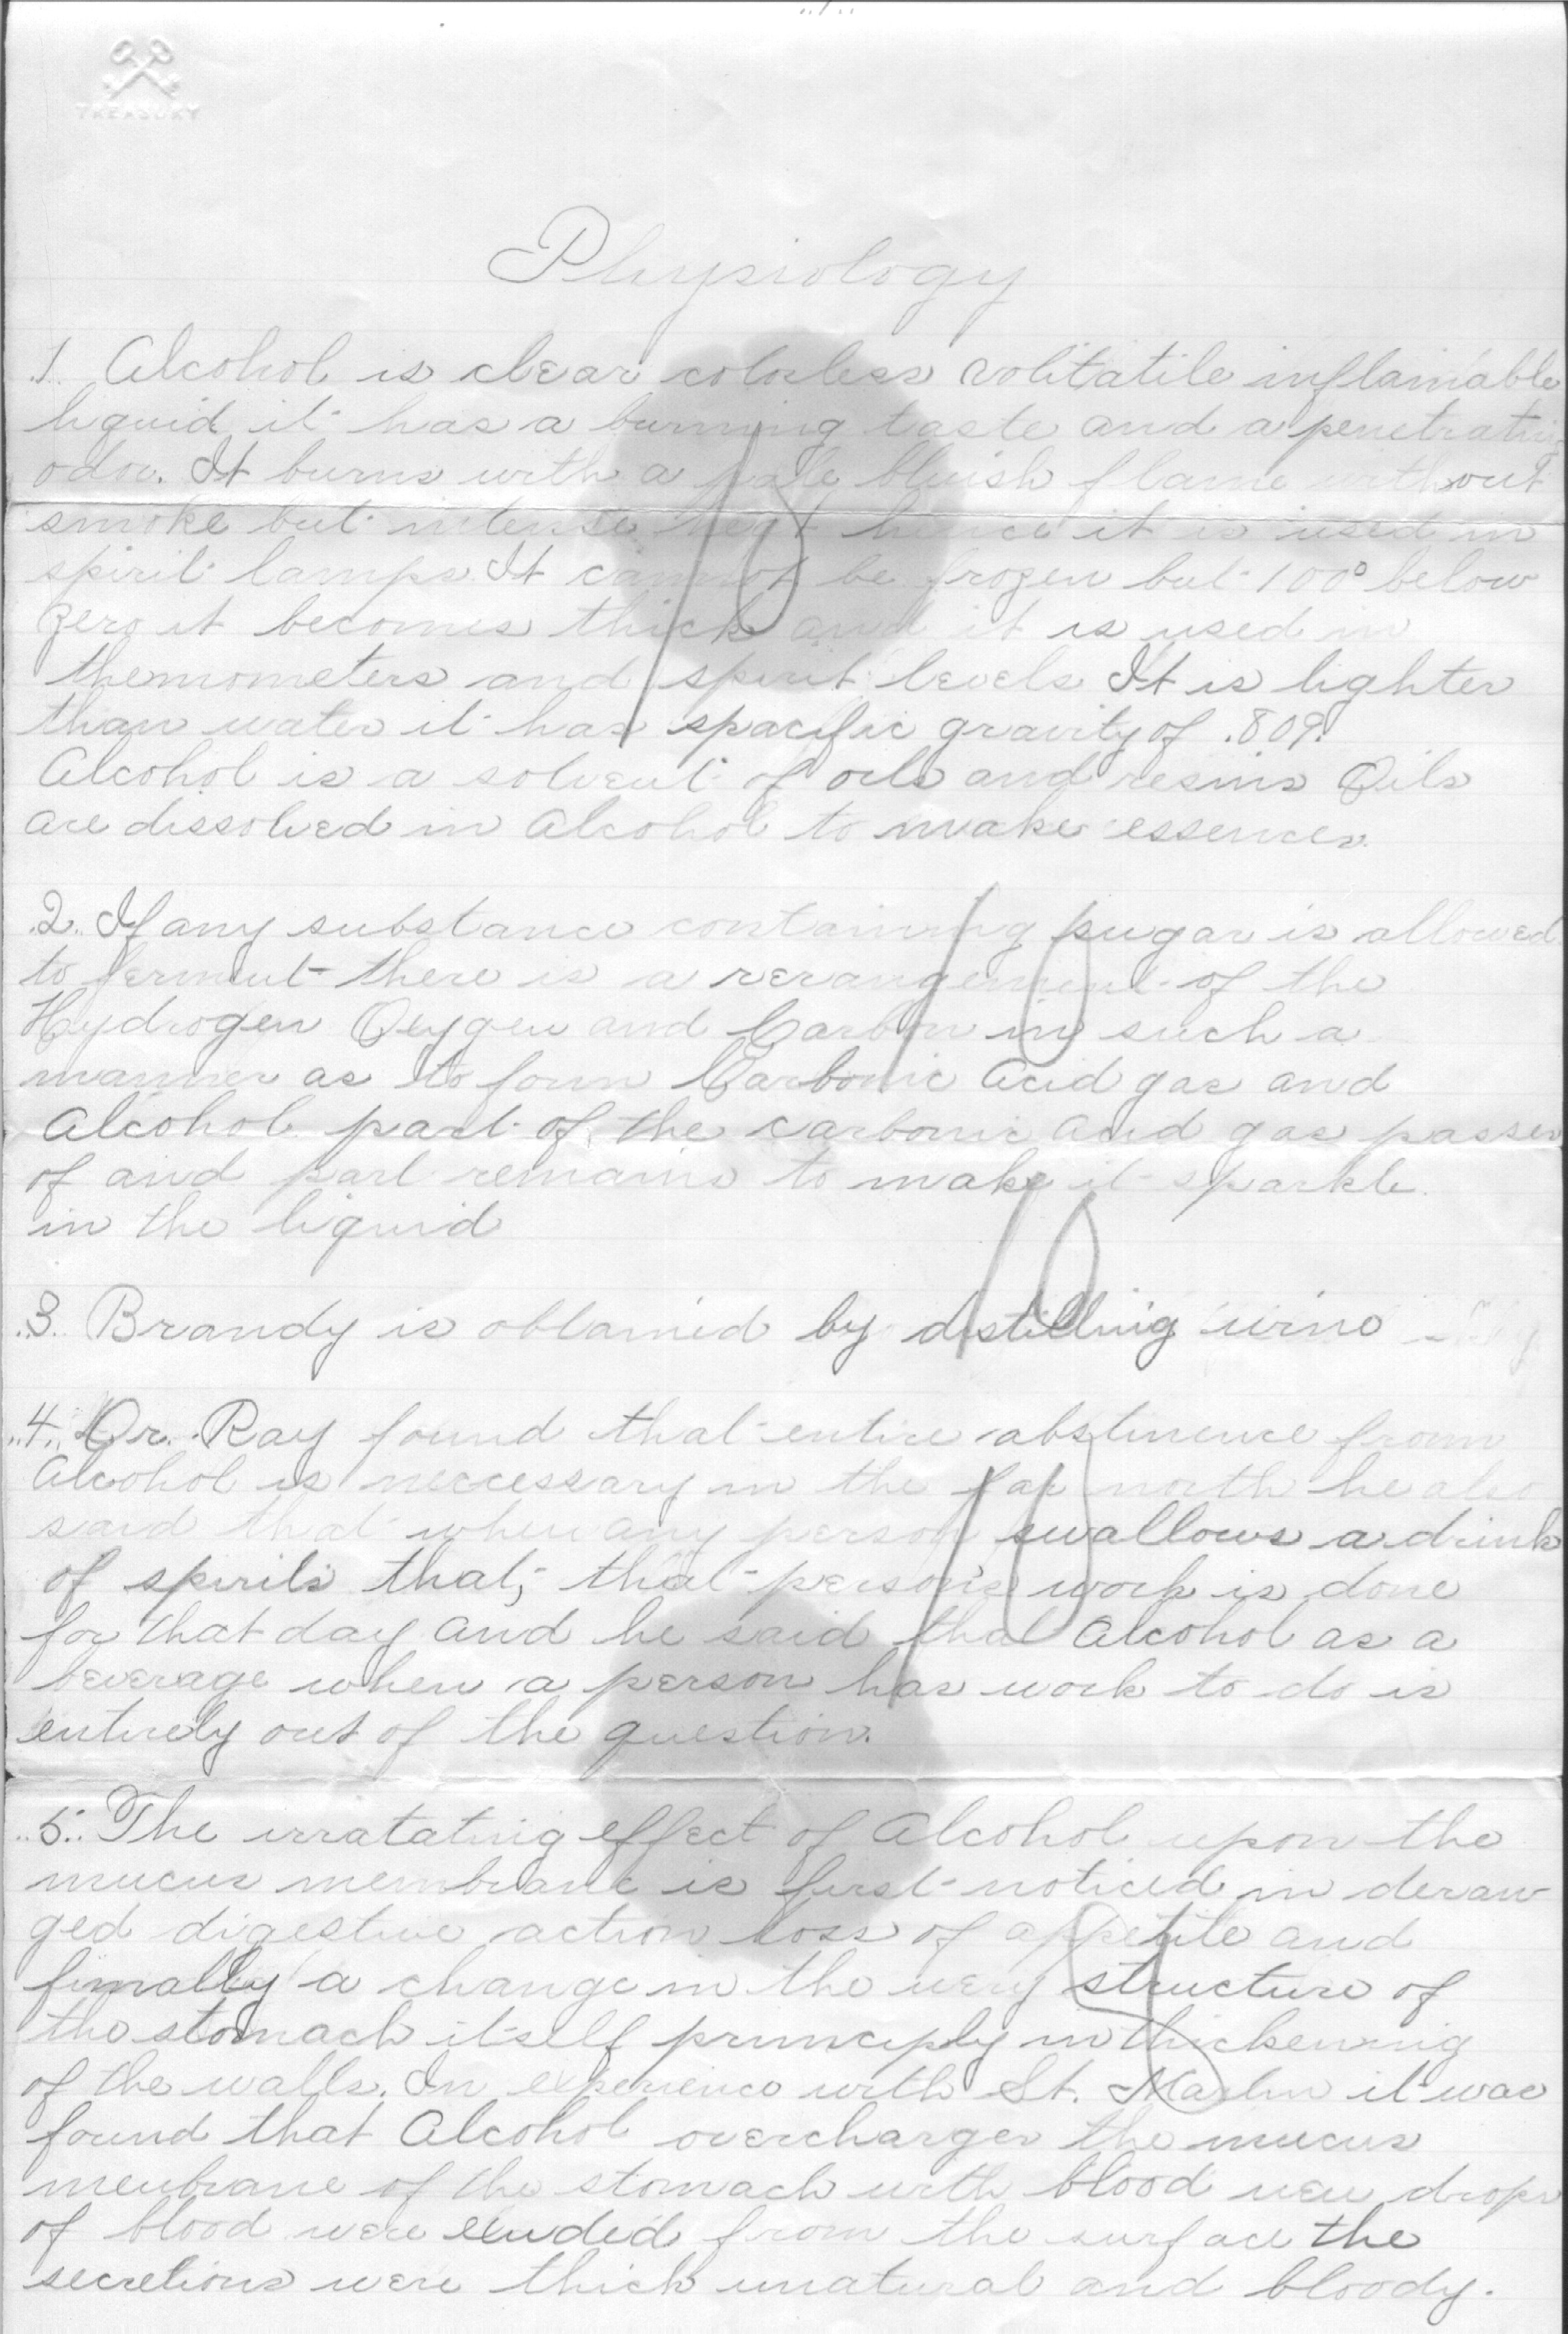 TREASURY
Physiology
.1. Alcohol is clear colorless volitatile inflamable
liquid it has a burning taste and a penetrating
odor. It burns with a pale bluish flame without
smoke but intense heat hence it is used in
spirit lamps. It cannot be frozen but 100° below
zero it becomes thick and it is used in
themometers and spirit levels It is lighter
than water it has spacific gravity of .809.
Alcohol is a solvent of oils and resins Oils
are dissolved in Alcohol to make essences.
10
.2. If any substance containing sugar is allowed
to ferment there is a rerangement of the
Hydrogen Oxygen and Carbon in such a
manner as to form Carbonic acid gas and
Alcohol part of the carbonic acid gas passes
of and part remains to make it sparkle
in the liquid
10
.3. Brandy is obtained by distilling wine
10
.4. Dr. Ray found that entire abstinence from
Alcohol is neccessary in the far north he also
said that when any person swallows a drink
of spirits that, that person's work is done
for that day and he said that Alcohol as a
beverage when a person has work to do is
entirely out of the question.
10
.5. The irratating effect of Alcohol upon the
mucus membrane is first noticed in deran
ged digestive action loss of appetite and
finally a change in the very structure of
the stomach itself principly in thickening
of the walls. In experience with St. Martin it was
found that Alcohol overcharges the mucus
membrane of the stomach with blood drops
of blood were exuded from the surface the
secretions were thick unatural and bloody.